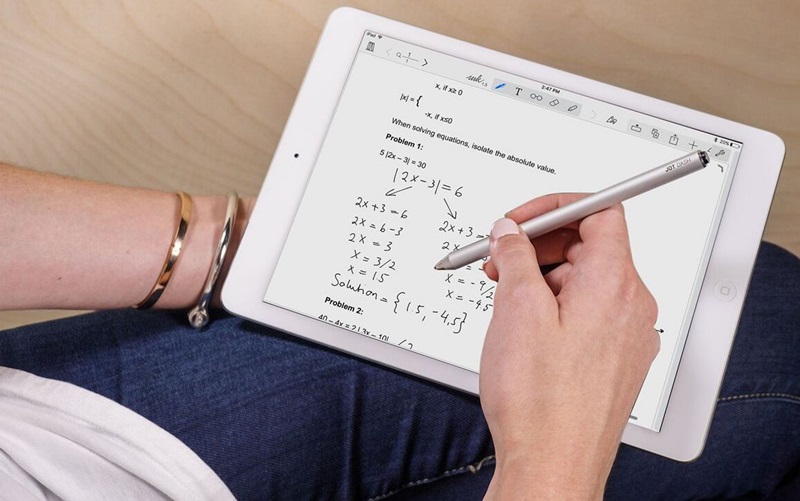 iPad
2:47 PM
20%
T
x, if x≥ 0
|x| = {
-x, if x≤0
When solving equations, isolate the absolute value.
Problem 1:
5 |2x – 3| = 30
|2x-3| = 6
2x+3 = 6
2x+3 =
2x = 6-3
2x
2x = 3
x = 3/2
x = -9/2
x = 1.5
x = -4.5
Solution = {1.5, -4.5}
Problem 2:
40 – 4x = 2 | 3x – 10|
JOT DASH